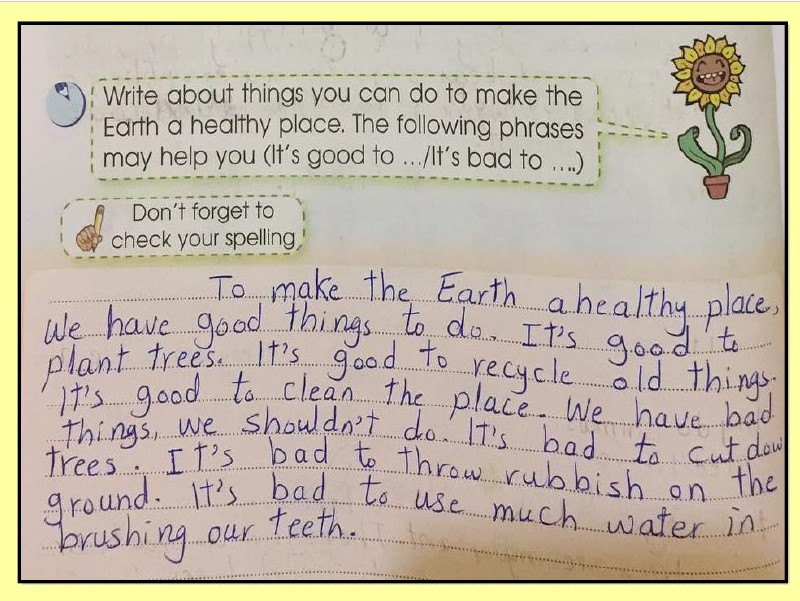 Write about things you can do to make the
Earth a healthy place. The following phrases
may help you (It's good to .../It's bad to ....)
Don't forget to
check your spelling
To make the Earth a healthy place,
We have good things to do. It's good to
plant trees. It's good to recycle old things.
It's good to clean the place. We have bad
things, we shouldn't do. It's bad to cut dow
trees. It's bad to throw rubbish on the
ground. It's bad to use much water in
brushing our teeth.